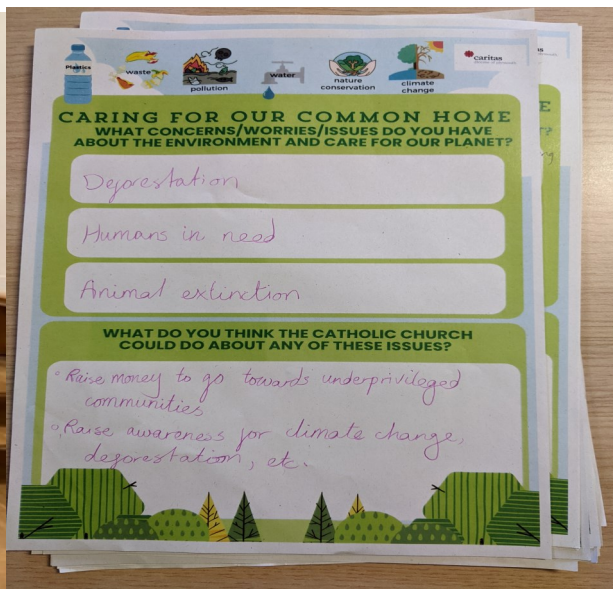 Plastics
waste
pollution
water
nature
conservation
climate
change
caritas
CARING FOR OUR COMMON HOME
WHAT CONCERNS/WORRIES/ISSUES DO YOU HAVE
ABOUT THE ENVIRONMENT AND CARE FOR OUR PLANET?
Deforestation
Humans in need
Animal extinction
WHAT DO YOU THINK THE CATHOLIC CHURCH
COULD DO ABOUT ANY OF THESE ISSUES?
Raise money to go towards underprivileged
communities
Raise awareness for climate change,
deforestation, etc.